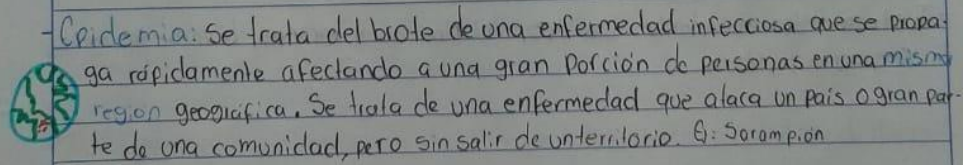 -Epidemia: Se trata del brote de una enfermedad infecciosa que se propa-
ga rápidamente afectando a una gran porción de personas en una misma
region geográfica. Se trata de una enfermedad que ataca un país o gran par-
te de una comunidad, pero sin salir de un territorio. Ej: Sarampión